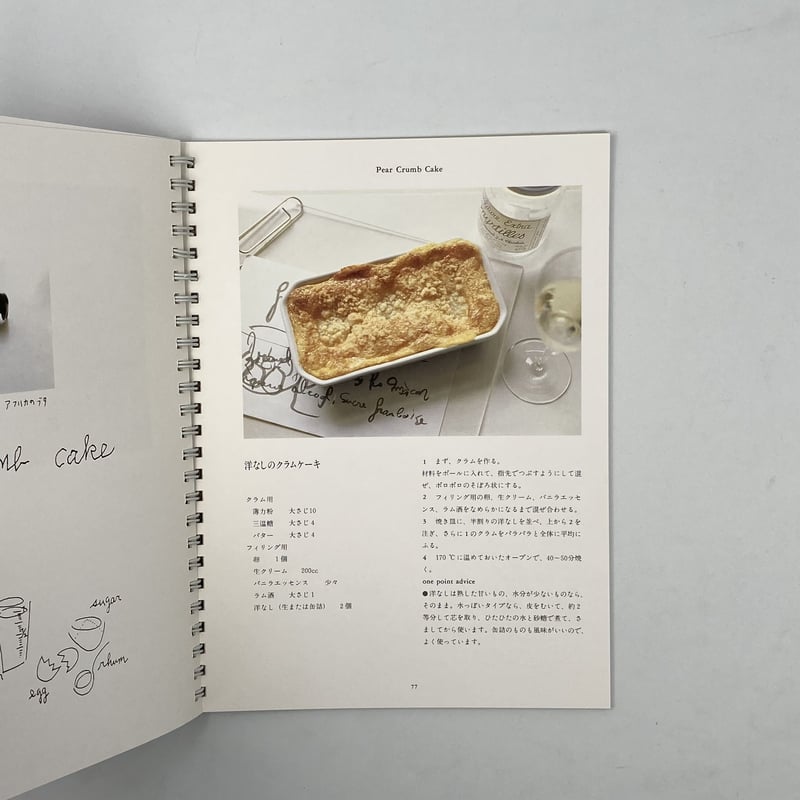 アフリカのブタ
mb cake
sugar
rhum
egg
Pear Crumb Cake
Extra
sucre framboise
洋なしのクラムケーキ
クラム用
薄力粉 大さじ10
三温糖 大さじ4
バター 大さじ4
フィリング用
卵 1個
生クリーム 200cc
バニラエッセンス 少々
ラム酒 大さじ1
洋なし(生または缶詰) 2個
1 まず、クラムを作る。
材料をボールに入れて、指先でつぶすようにして混
ぜ、ボロボロのそぼろ状にする。
2 フィリング用の卵、生クリーム、バニラエッセ
ンス、ラム酒をなめらかになるまで混ぜ合わせる。
3 焼き皿に、半割りの洋なしを並べ、上から2を
注ぎ、さらに1のクラムをパラパラと全体に平均に
ふる。
4 170℃に温めておいたオーブンで、40〜50分焼
く。
one point advice
●洋なしは熟した甘いもの、水分が少ないものなら、
そのまま。水っぽいタイプなら、皮をむいて、約2
等分して芯を取り、ひたひたの水と砂糖で煮て、さ
ましてから使います。缶詰のものも風味がいいので、
よく使っています。
77